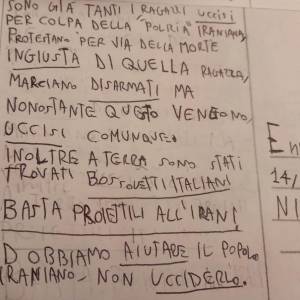 SONO GIÀ TANTI I RAGAZZI UCCISI
PER COLPA DELLA "POLIZIA" IRANIANA,
PROTESTANO PER VIA DELLA MORTE
INGIUSTA DI QUELLA RAGAZZA,
MARCIANO DISARMATI MA
NONOSTANTE QUESTO VENGONO
UCCISI COMUNQUE.
INOLTRE A TERRA SONO STATI
TROVATI BOSSOLETTI ITALIANI
BASTA PROIETTILI ALL'IRAN!
DOBBIAMO AIUTARE IL POPOLO
IRANIANO, NON UCCIDERLO.
14/
NI